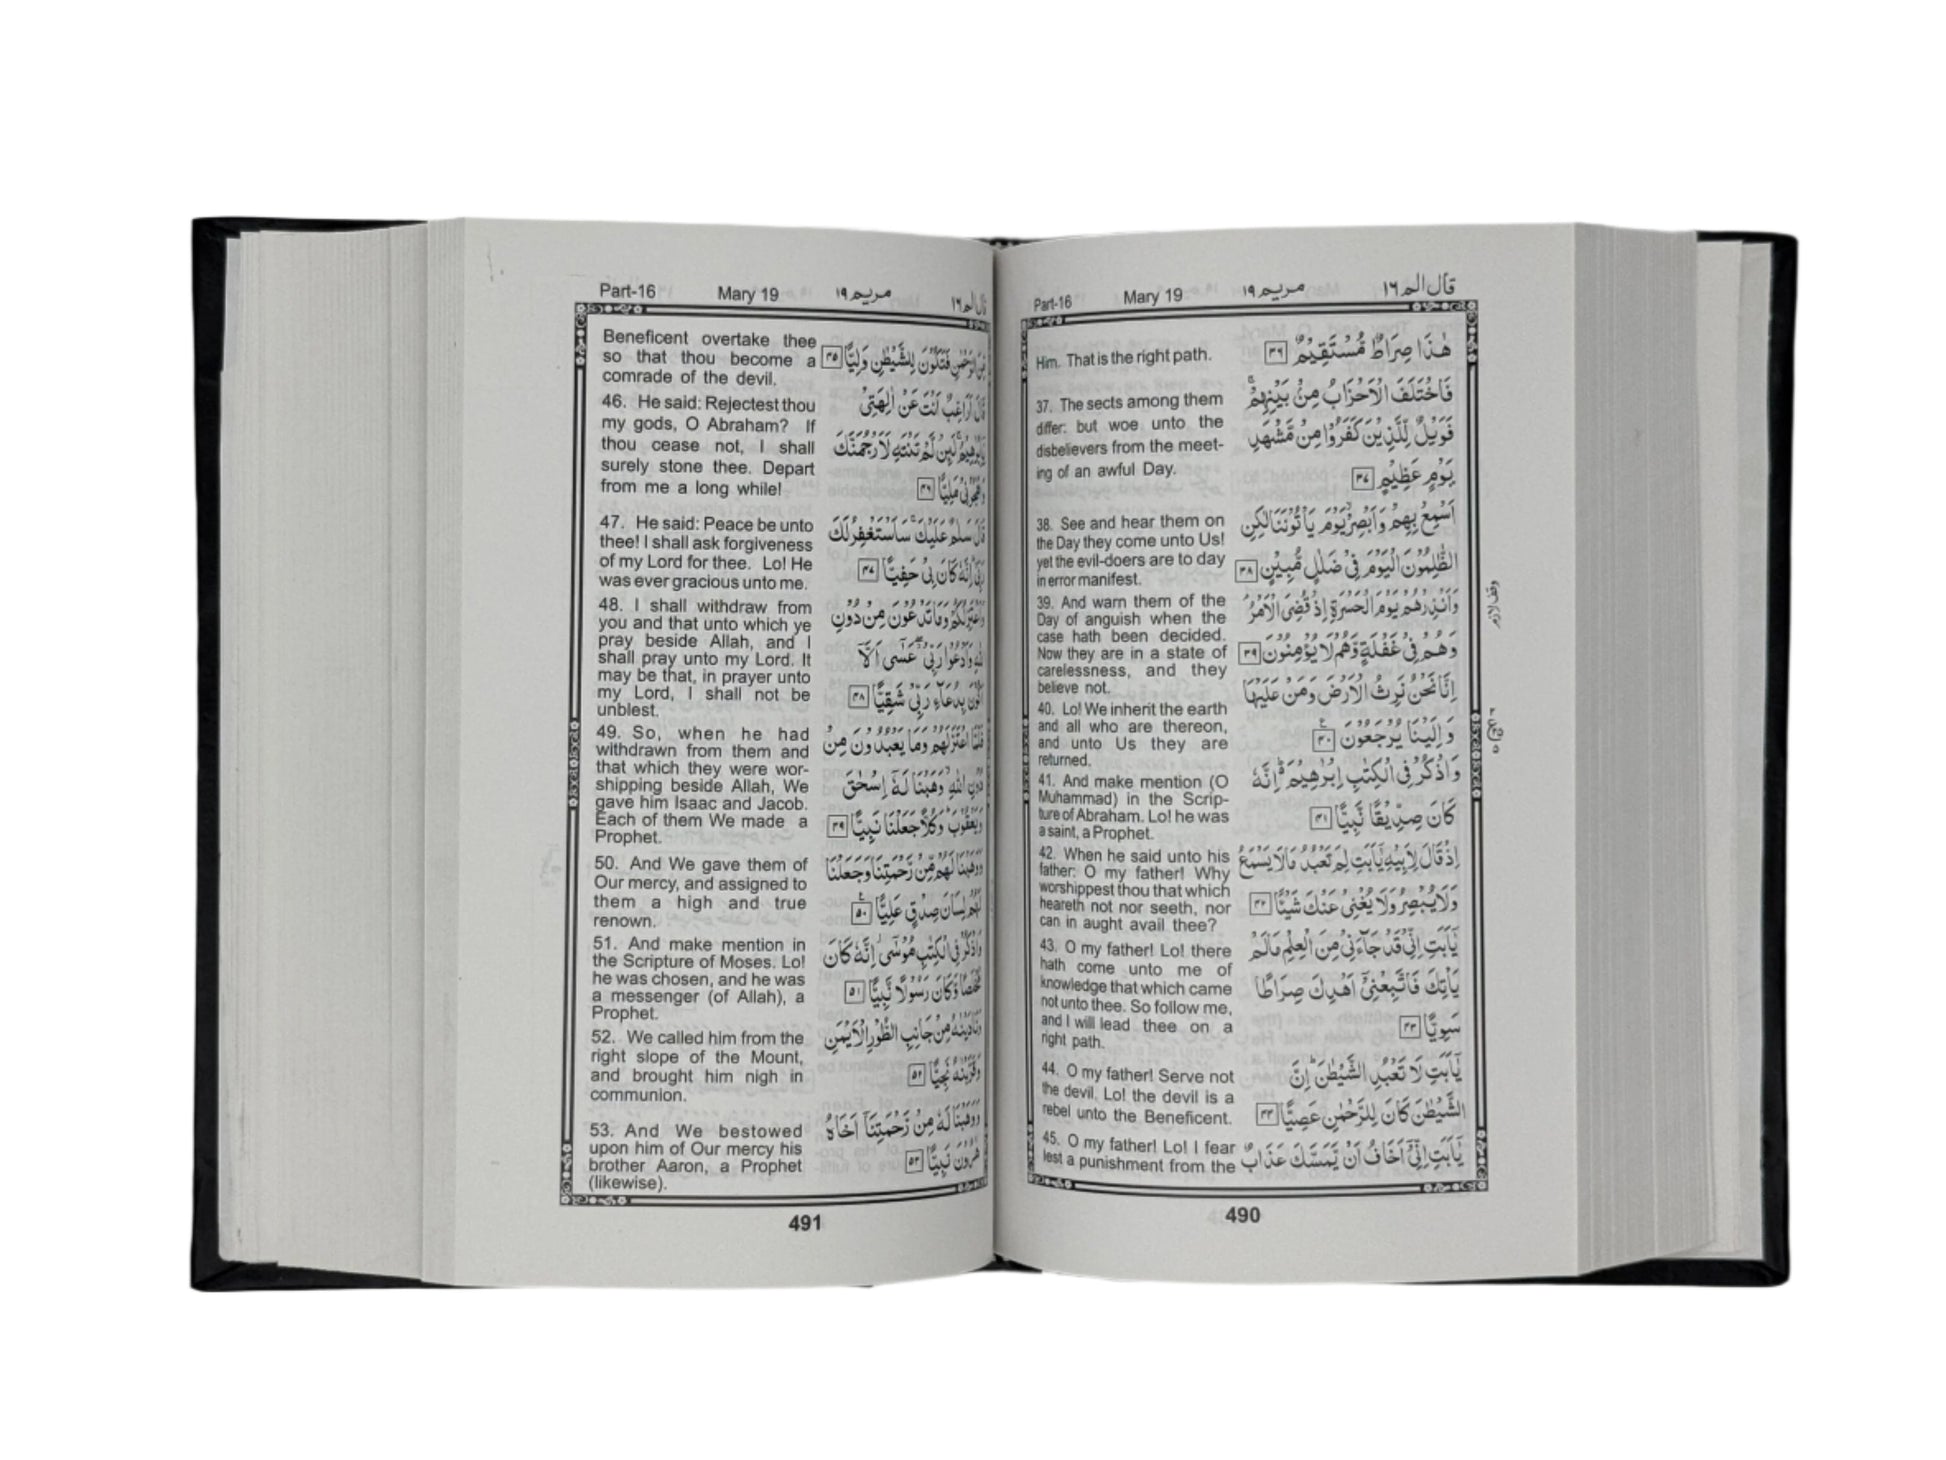 Part-16 Mary 19 مريم ١٩ قال الم ١٦
Him. That is the right path.
37. The sects among them
differ: but woe unto the
disbelievers from the meet-
ing of an awful Day.
38. See and hear them on
the Day they come unto Us!
yet the evil-doers are to day
in error manifest.
39. And warn them of the
Day of anguish when the
case hath been decided.
Now they are in a state of
carelessness, and they
believe not.
40. Lo! We inherit the earth
and all who are thereon,
and unto Us they are
returned.
41. And make mention (O
Muhammad) in the Scrip-
ture of Abraham. Lo! he was
a saint, a Prophet.
42. When he said unto his
father: O my father! Why
worshippest thou that which
heareth not nor seeth, nor
can in aught avail thee?
43. O my father! Lo! there
hath come unto me of
knowledge that which came
not unto thee. So follow me,
and I will lead thee on a
right path.
44. O my father! Serve not
the devil. Lo! the devil is a
rebel unto the Beneficent.
45. O my father! Lo! I fear
lest a punishment from the
هٰذَا صِرَاطٌ مُّسْتَقِيْمٌ ٣٦
فَاخْتَلَفَ الْاَحْزَابُ مِنْۢ بَيْنِهِمْ
فَوَيْلٌ لِّلَّذِيْنَ كَفَرُوْا مِنْ مَّشْهَدِ
يَوْمٍ عَظِيْمٍ ٣٧
اَسْمِعْ بِهِمْ وَاَبْصِرْ يَوْمَ يَاْتُوْنَنَا لٰكِنِ
الظّٰلِمُوْنَ الْيَوْمَ فِيْ ضَلٰلٍ مُّبِيْنٍ ٣٨
وَاَنْذِرْهُمْ يَوْمَ الْحَسْرَةِ اِذْ قُضِيَ الْاَمْرُ
وَهُمْ فِيْ غَفْلَةٍ وَّهُمْ لَا يُؤْمِنُوْنَ ٣٩
اِنَّا نَحْنُ نَرِثُ الْاَرْضَ وَمَنْ عَلَيْهَا
وَاِلَيْنَا يُرْجَعُوْنَ ٤٠
وَاذْكُرْ فِي الْكِتٰبِ اِبْرٰهِيْمَ اِنَّهٗ
كَانَ صِدِّيْقًا نَّبِيًّا ٤١
اِذْ قَالَ لِاَبِيْهِ يٰٓاَبَتِ لِمَ تَعْبُدُ مَا لَا يَسْمَعُ
وَلَا يُبْصِرُ وَلَا يُغْنِيْ عَنْكَ شَيْـًٔا ٤٢
يٰٓاَبَتِ اِنِّيْ قَدْ جَآءَنِيْ مِنَ الْعِلْمِ مَا لَمْ
يَاْتِكَ فَاتَّبِعْنِيْٓ اَهْدِكَ صِرَاطًا
سَوِيًّا ٤٣
يٰٓاَبَتِ لَا تَعْبُدِ الشَّيْطٰنَ اِنَّ
الشَّيْطٰنَ كَانَ لِلرَّحْمٰنِ عَصِيًّا ٤٤
يٰٓاَبَتِ اِنِّيْٓ اَخَافُ اَنْ يَّمَسَّكَ عَذَابٌ
وقف لازم
490
Part-16 Mary 19 مريم ١٩ قال الم ١٦
Beneficent overtake thee
so that thou become a
comrade of the devil.
46. He said: Rejectest thou
my gods, O Abraham? If
thou cease not, I shall
surely stone thee. Depart
from me a long while!
47. He said: Peace be unto
thee! I shall ask forgiveness
of my Lord for thee. Lo! He
was ever gracious unto me.
48. I shall withdraw from
you and that unto which ye
pray beside Allah, and I
shall pray unto my Lord. It
may be that, in prayer unto
my Lord, I shall not be
unblest.
49. So, when he had
withdrawn from them and
that which they were wor-
shipping beside Allah, We
gave him Isaac and Jacob.
Each of them We made a
Prophet.
50. And We gave them of
Our mercy, and assigned to
them a high and true
renown.
51. And make mention in
the Scripture of Moses. Lo!
he was chosen, and he was
a messenger (of Allah), a
Prophet.
52. We called him from the
right slope of the Mount,
and brought him nigh in
communion.
53. And We bestowed
upon him of Our mercy his
brother Aaron, a Prophet
(likewise).
مِّنَ الرَّحْمٰنِ فَتَكُوْنَ لِلشَّيْطٰنِ وَلِيًّا ٤٥
قَالَ اَرَاغِبٌ اَنْتَ عَنْ اٰلِهَتِيْ
يٰٓاِبْرٰهِيْمُ لَئِنْ لَّمْ تَنْتَهِ لَاَرْجُمَنَّكَ
وَاهْجُرْنِيْ مَلِيًّا ٤٦
قَالَ سَلٰمٌ عَلَيْكَ سَاَسْتَغْفِرُ لَكَ
رَبِّيْ اِنَّهٗ كَانَ بِيْ حَفِيًّا ٤٧
وَاَعْتَزِلُكُمْ وَمَا تَدْعُوْنَ مِنْ دُوْنِ
اللّٰهِ وَاَدْعُوْا رَبِّيْ عَسٰٓى اَلَّآ
اَكُوْنَ بِدُعَآءِ رَبِّيْ شَقِيًّا ٤٨
فَلَمَّا اعْتَزَلَهُمْ وَمَا يَعْبُدُوْنَ مِنْ
دُوْنِ اللّٰهِ وَهَبْنَا لَهٗٓ اِسْحٰقَ
وَيَعْقُوْبَ وَكُلًّا جَعَلْنَا نَبِيًّا ٤٩
وَوَهَبْنَا لَهُمْ مِّنْ رَّحْمَتِنَا وَجَعَلْنَا
لَهُمْ لِسَانَ صِدْقٍ عَلِيًّا ٥٠
وَاذْكُرْ فِي الْكِتٰبِ مُوْسٰٓى اِنَّهٗ كَانَ
مُخْلَصًا وَّكَانَ رَسُوْلًا نَّبِيًّا ٥١
وَنَادَيْنٰهُ مِنْ جَانِبِ الطُّوْرِ الْاَيْمَنِ
وَقَرَّبْنٰهُ نَجِيًّا ٥٢
وَوَهَبْنَا لَهٗ مِنْ رَّحْمَتِنَآ اَخَاهُ
هٰرُوْنَ نَبِيًّا ٥٣
491